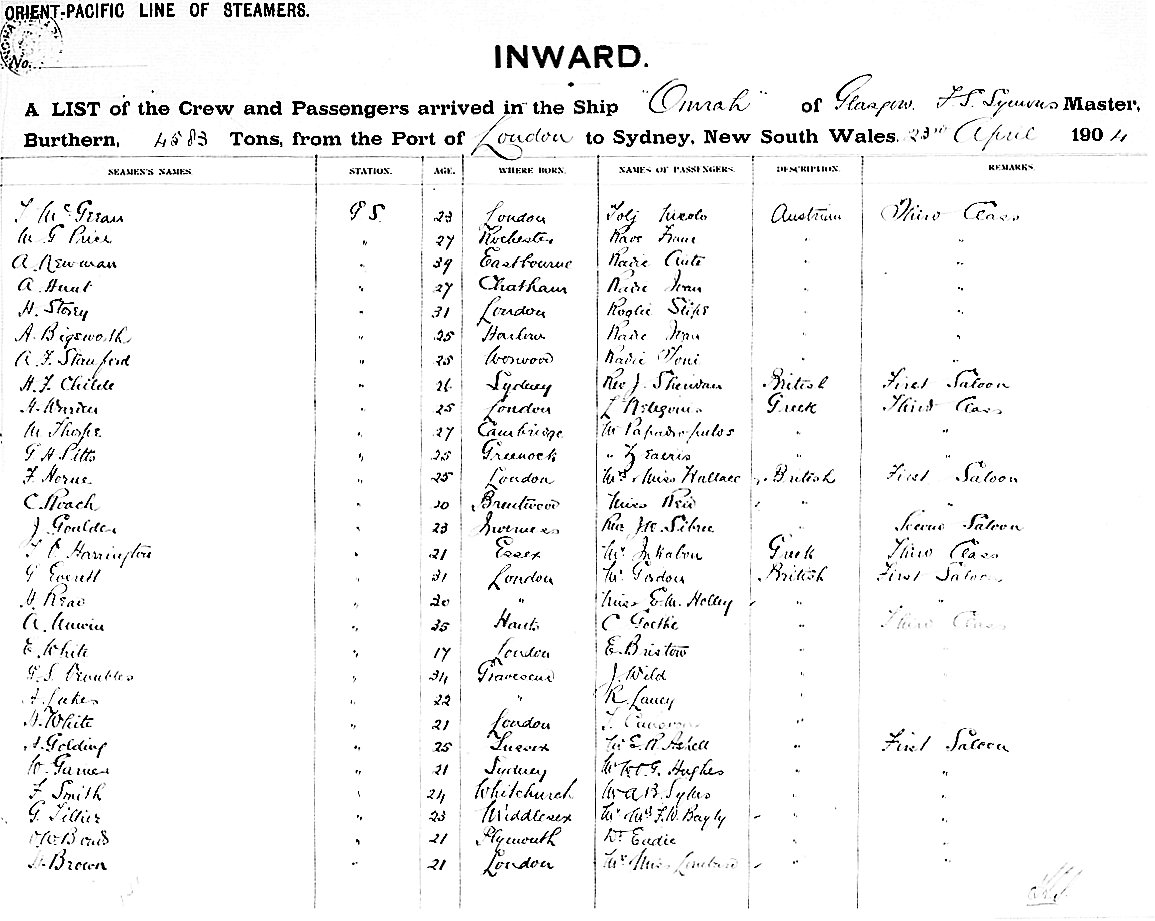 ORIENT-PACIFIC LINE OF STEAMERS.
No.
INWARD.
A LIST of the Crew and Passengers arrived in the Ship "Omrah" of Glasgow. F.S. Symons Master,
Burthern, 4583 Tons, from the Port of London to Sydney, New South Wales, 23rd April 1904
SEAMEN'S NAMES STATION. AGE. WHERE BORN. NAMES OF PASSENGERS. DESCRIPTION. REMARKS
T McGrean G S. 23 London Austrian Third Class
W G Price " 27 Rochester " "
A Newman " 39 Eastbourne Radic Ante " "
A Hunt " 27 Chatham Radic Ivan " "
H. Storey " 31 London Roglic Stipe " "
A. Bigsworth " 25 Harlow Radic Ivan " "
A. F. Stanford " 25 Radic Toni " "
H. F. Childe " 26 Sydney Rev J. Sherwan British First Saloon
H. Warden " 25 London Greek Third Class
W Thorpe " 27 Cambridge Mr Papadopulos " "
G H Pitts " 25 Greenock " "
F. Horne " 25 London Mrs & Miss Wallace British First Saloon
C. Roach " 20 Brentwood Miss Reid " "
J. Goulden " 23 Inverness Rev. J. Sibree " Second Saloon
T C Harrington " 21 Essex Greek Third Class
G Everett " 31 London Mr. Gordon British First Saloon
H. Read " 20 " Miss E. M. Holley " "
A. Unwin " 35 Hants C Goethe " Third Class
E. White " 17 London E. Bristow " "
G. S. Venables " 34 Gravesend J. Wild " "
A. Lukes " 22 " R. Laney " "
H. White " 21 London T. Cameron " "
A. Golding " 25 Sussex Mr E. R. First Saloon
W. Garner " 21 Sydney Mr W. G. Hughes " "
F. Smith " 24 Whitchurch Mr A B. Sykes " "
G. Tillier " 23 Middlesex Mr & Mrs F. W. Bayly " "
W. Bond " 21 Plymouth Dr Eadie " "
H. Brown " 21 London Mr & Miss Lombard " "